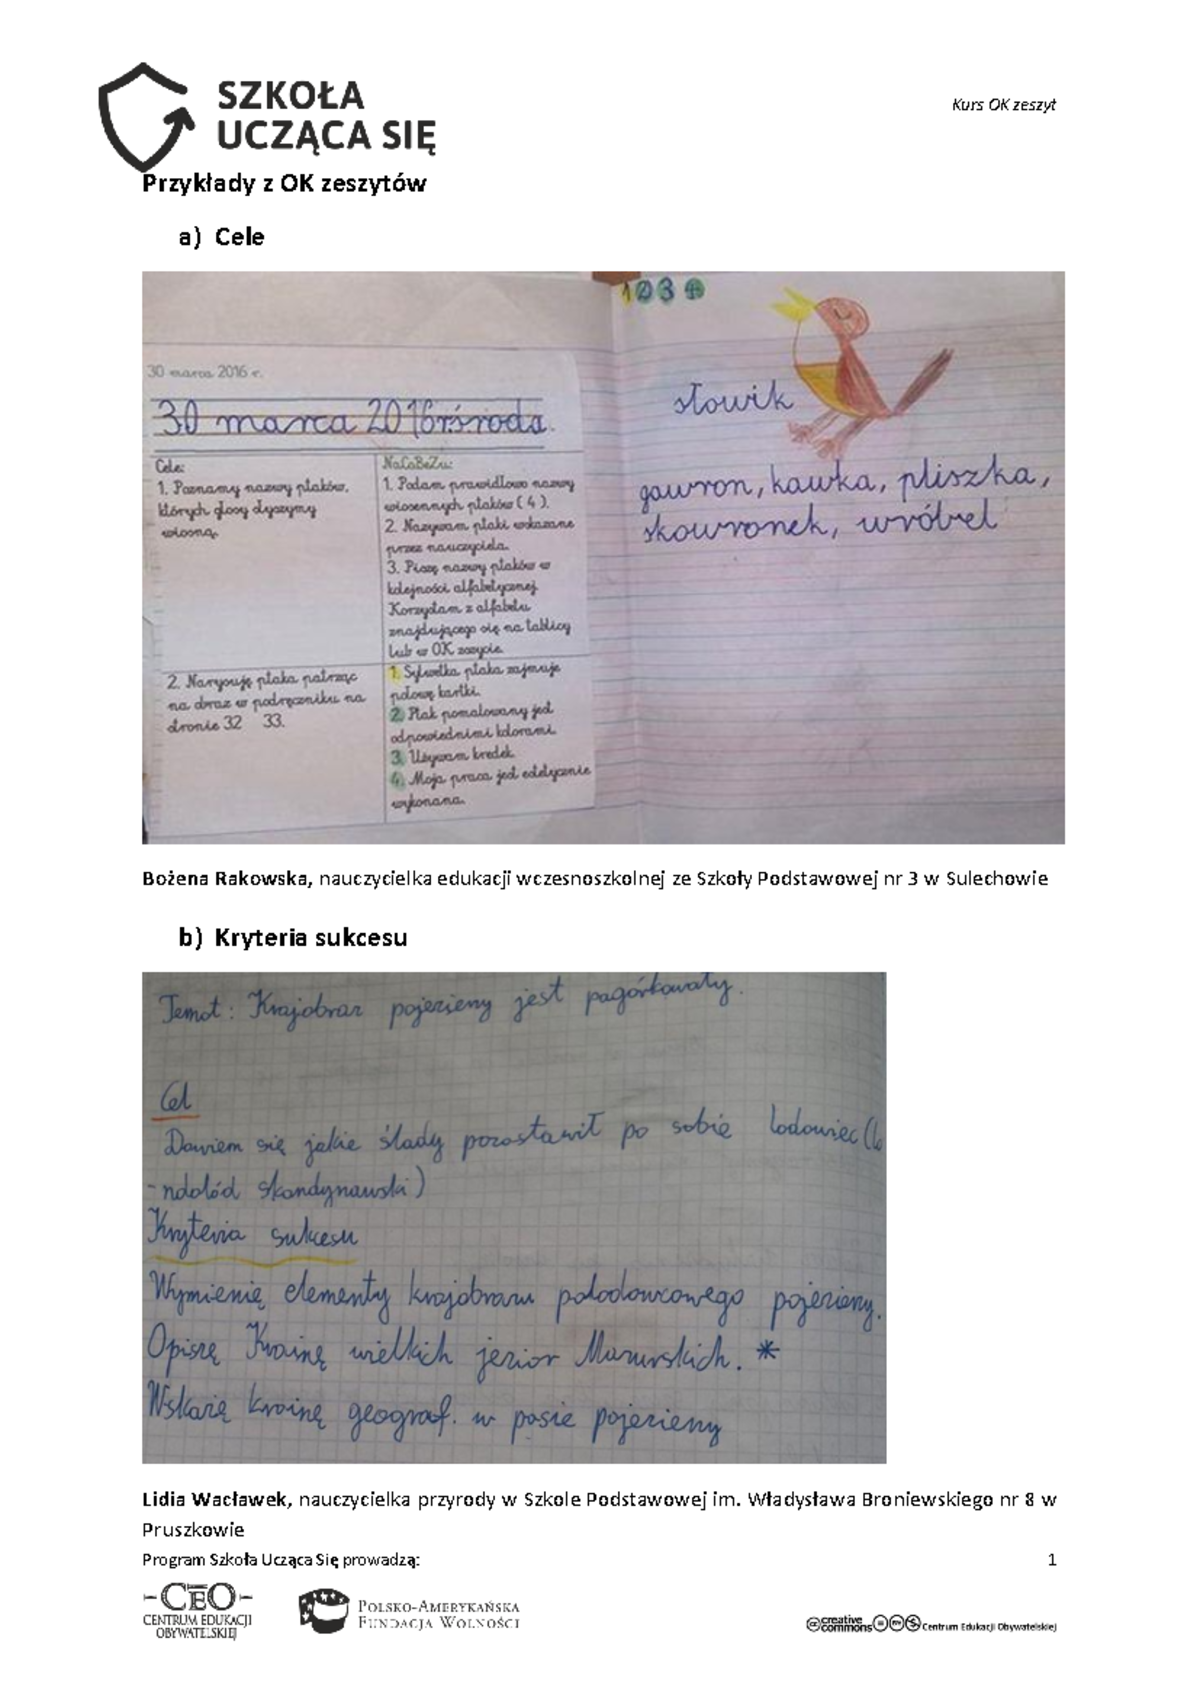 SZKOŁA
UCZĄCA SIĘ
Kurs OK zeszyt
Przykłady z OK zeszytów
a) Cele
30 marca 2016 r.
30 marca 2016r. środa.
Cele:
1. Poznamy nazwy ptaków,
których głosy słyszymy
wiosną.
NaCoBeZu:
1. Podam prawidłowo nazwy
wiosennych ptaków ( 4 ).
2. Nazywam ptaki wskazane
przez nauczyciela.
3. Piszę nazwy ptaków w
kolejności alfabetycznej.
Korzystam z alfabetu
znajdującego się na tablicy
lub w OK zeszycie.
2. Narysuję ptaka patrząc
na obraz w podręczniku na
stronie 32 33.
1. Sylwetka ptaka zajmuje
połowę kartki.
2. Ptak pomalowany jest
odpowiednimi kolorami.
3. Używam kredek.
4. Moja praca jest estetycznie
wykonana.
1 2 3 4
słowik
gawron, kawka, pliszka,
skowronek, wróbel
Bożena Rakowska, nauczycielka edukacji wczesnoszkolnej ze Szkoły Podstawowej nr 3 w Sulechowie
b) Kryteria sukcesu
Temat: Krajobraz pojezierny jest pagórkowaty.
Cel
Dowiem się jakie ślady pozostawił po sobie lodowiec (lą
-ndolód skandynawski)
Kryteria sukcesu
Wymienię elementy krajobrazu polodowcowego pojezierny.
Opiszę Krainę wielkich jezior Mazurskich. *
Wskażę krainę geograf. w pasie pojezierny
Lidia Wacławek, nauczycielka przyrody w Szkole Podstawowej im. Władysława Broniewskiego nr 8 w
Pruszkowie
Program Szkoła Ucząca Się prowadzą:
1
CEO
CENTRUM EDUKACJI
OBYWATELSKIEJ
POLSKO-AMERYKAŃSKA
FUNDACJA WOLNOŚCI
creative
commons
Centrum Edukacji Obywatelskiej